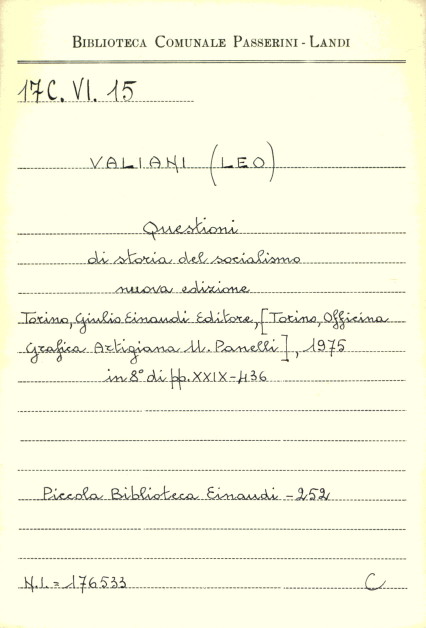 BIBLIOTECA COMUNALE PASSERINI - LANDI
17C. VI. 15
VALIANI (LEO)
Questioni
di storia del socialismo
nuova edizione
Torino, Giulio Einaudi Editore, [Torino, Officina
Grafica Artigiana U. Panelli], 1975
in 8° di pp. XXIX-436
Piccola Biblioteca Einaudi - 252
N.I. = 176533 C